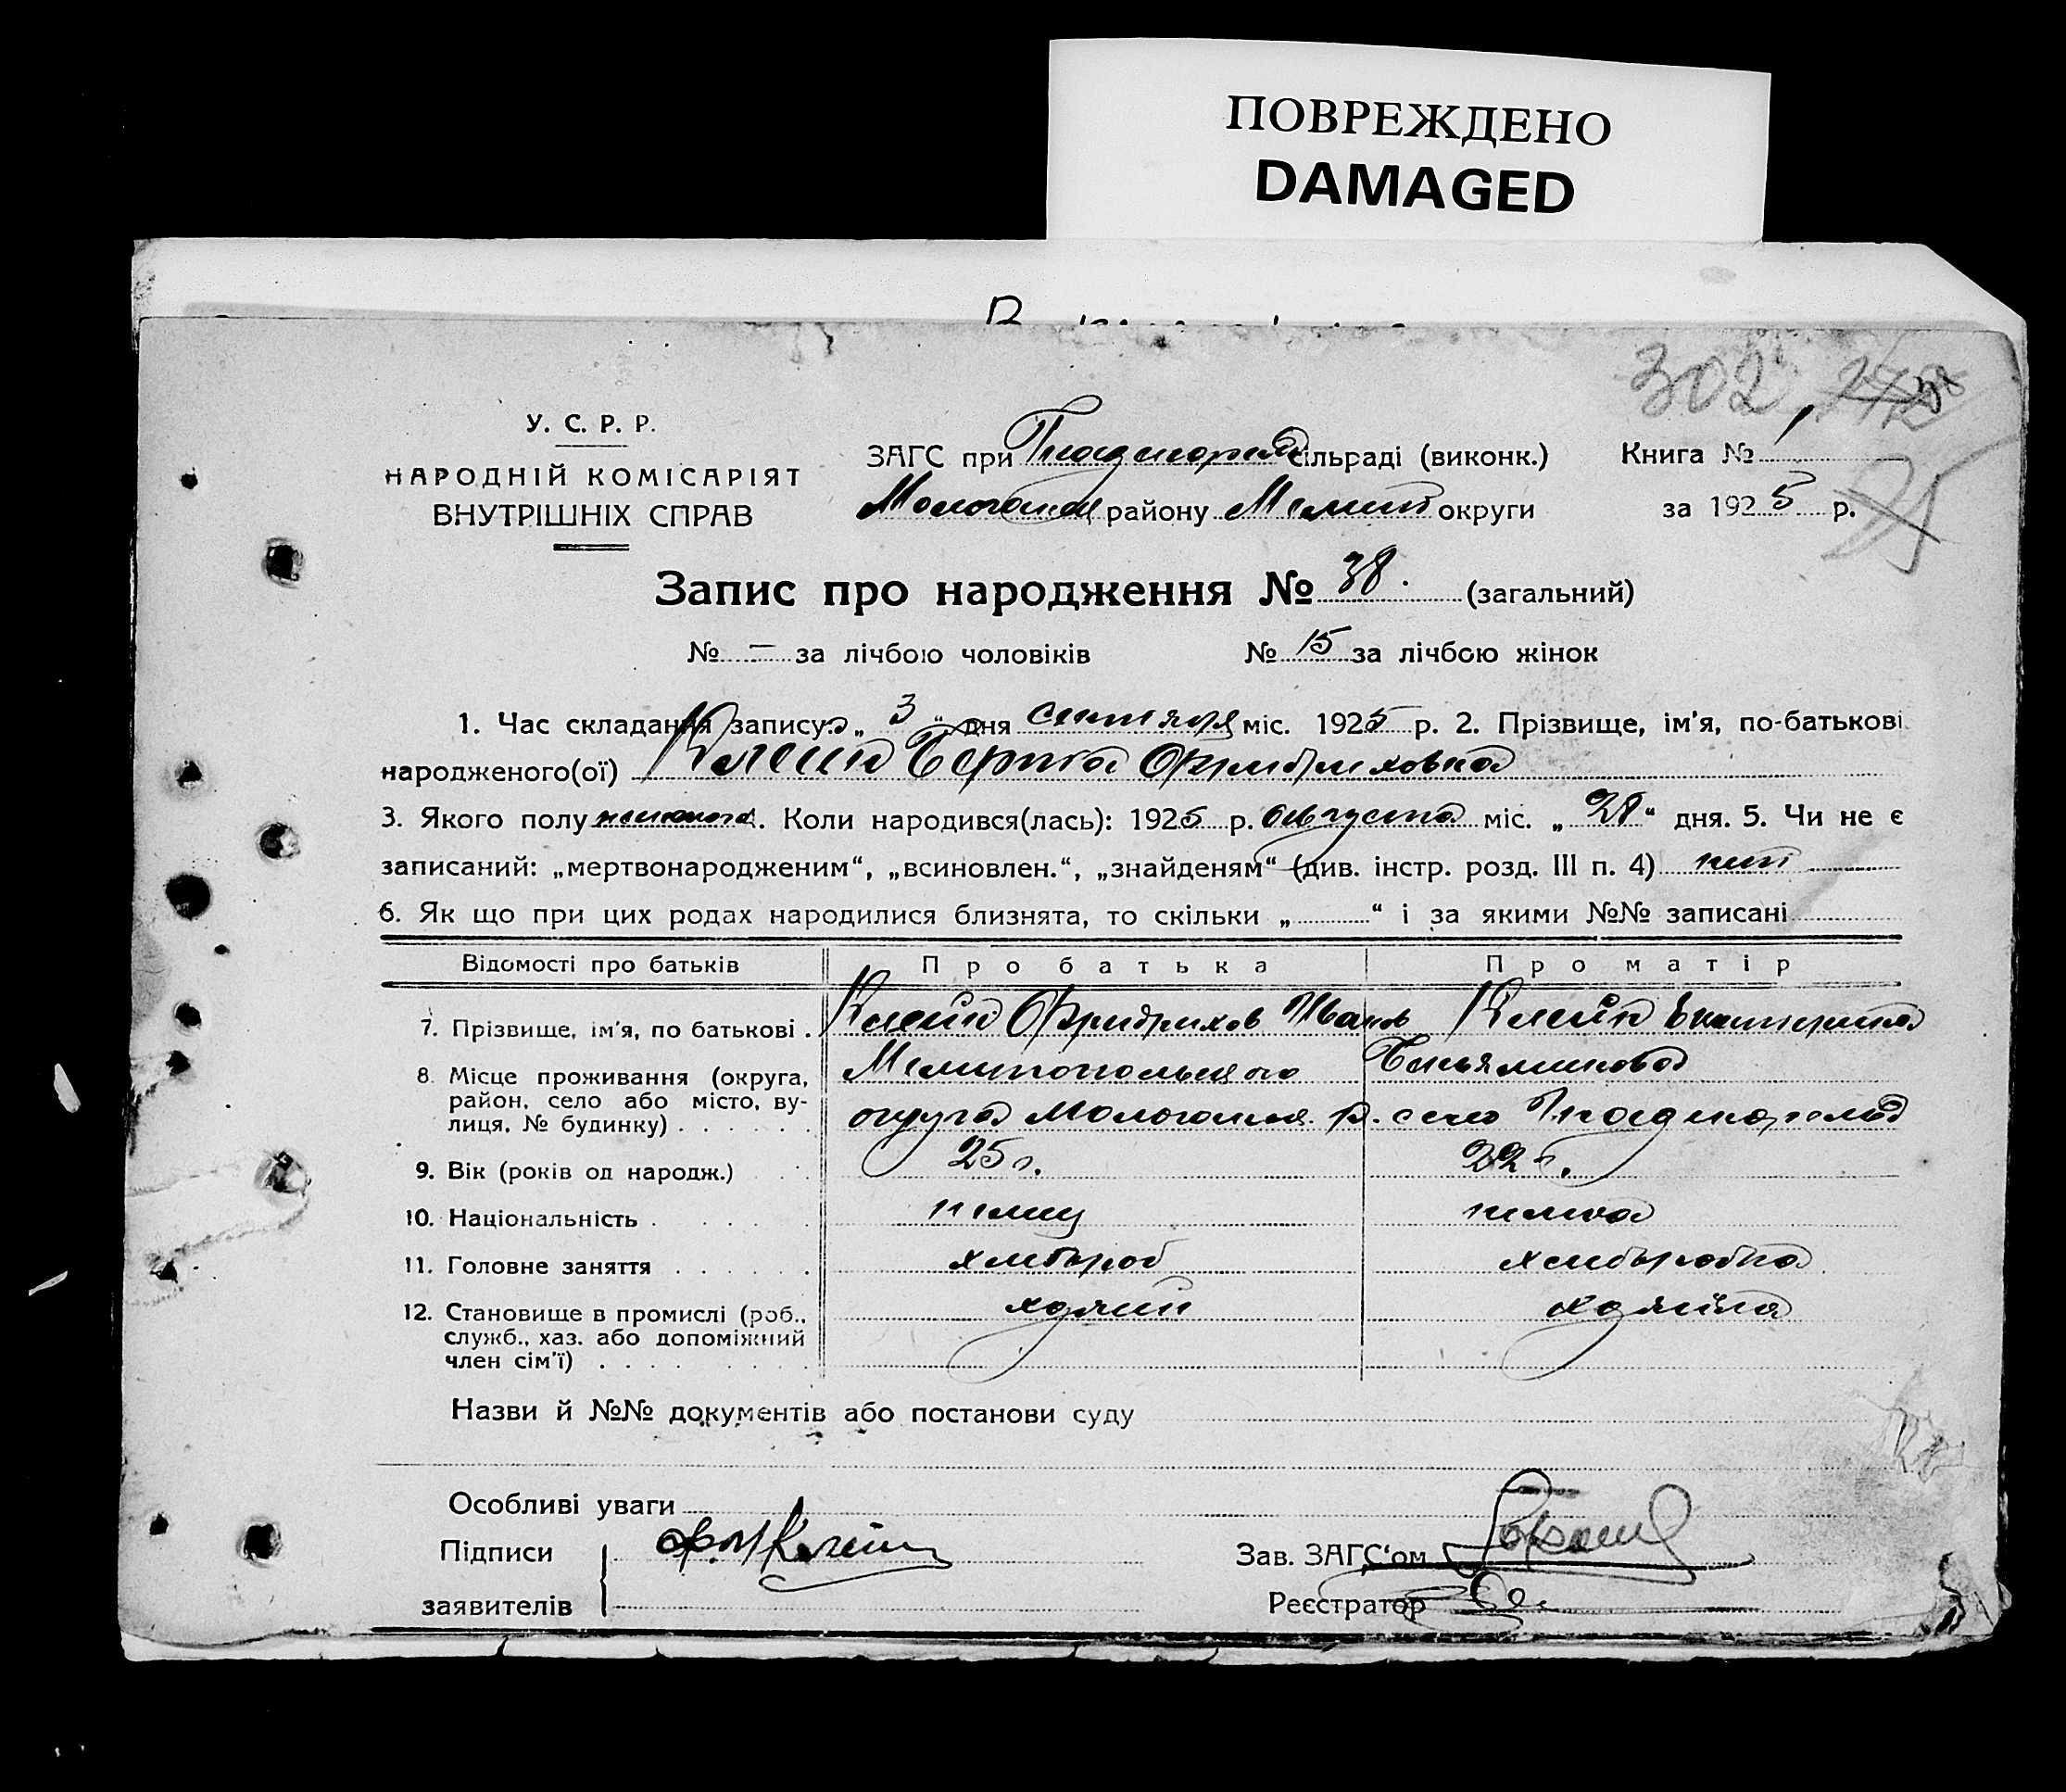 ПОВРЕЖДЕНО
DAMAGED
302
У. С. Р. Р.
НАРОДНІЙ КОМІСАРІЯТ
ВНУТРІШНІХ СПРАВ
ЗАГС при сільраді (виконк.)
Молочанск району Мелит округи
Книга № 1
за 1925 р.
Запис про народження № 38. (загальний)
№ — за лічбою чоловіків № 15 за лічбою жінок
1. Час складання запису: „ 3 “ дня сентября міс. 1925 р. 2. Прізвище, ім'я, по-батькові
народженого(ої) Клейн Берта Фридриховна
3. Якого полу женского 4. Коли народився(лась): 1925 р. августа міс. „ 28 “ дня. 5. Чи не є
записаний: „мертвонародженим“, „всиновлен.“, „знайденям“ (див. інстр. розд. III п. 4) нет
6. Як що при цих родах народилися близнята, то скільки „ “ і за якими №№ записані
Відомості про батьків Про батька Про матір
7. Прізвище, ім'я, по батькові . Клейн Фридрихов Иван Клейн Екатерина
Беньяминова
8. Місце проживання (округа, Мелитопольского
район, село або місто, ву-
лиця, № будинку) . . . . . . округа Молочанск. р. село
9. Вік (років од народж.) 25 г. 22 г.
10. Національність . немец немка
11. Головне заняття . . . . . . хлебороб хлебороб‌ка
12. Становище в промислі (роб., хозяин хозяйка
служб., хаз. або допоміжний
член сім'ї) . . . .
Назви й №№ документів або постанови суду
Особливі уваги
Підписи Ф. И Клейн
заявителів
Зав. ЗАГС'ом
Реєстратор